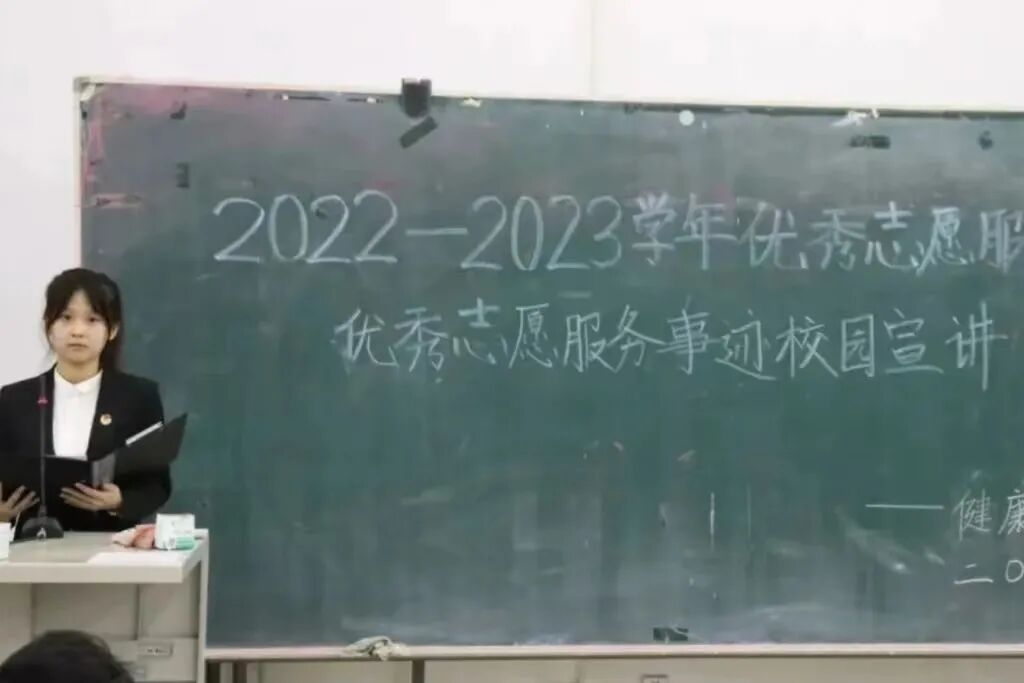 2022—2023学年优秀志愿服
优秀志愿服务事迹校园宣讲
——健康
二0